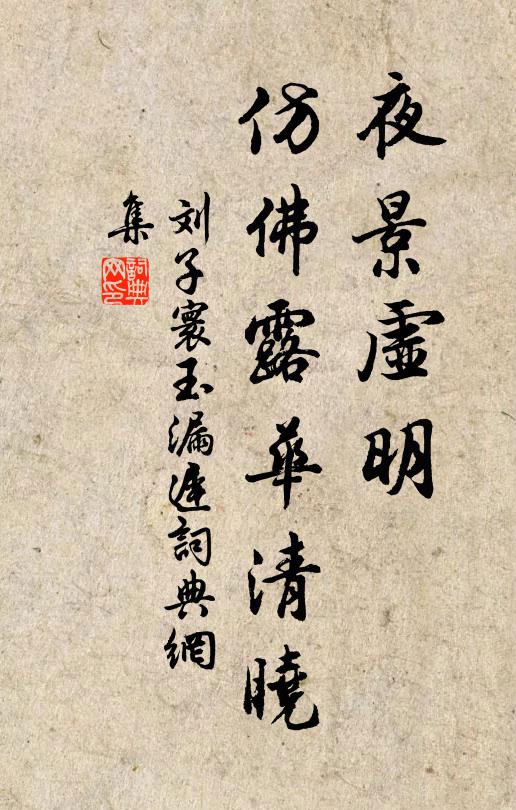 夜景虛明
仿佛露華清曉
刘子寰玉漏遲詞典網
集
詞典網印